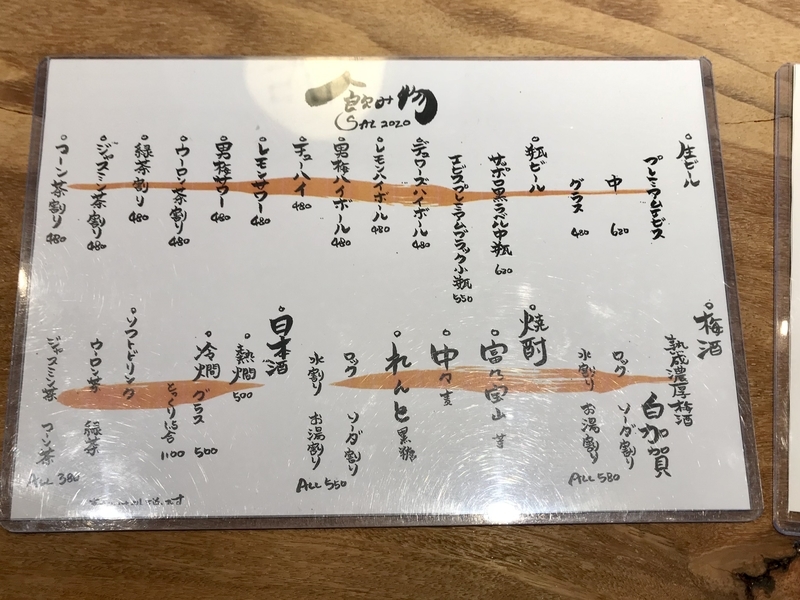 飲み物
SAL 2020
生ビール
プレミアムエビス
中 620
グラス 480
瓶ビール
サッポロ黒ラベル中瓶 620
エビスプレミアムブラック小瓶 550
デュワーズハイボール 480
レモンハイボール 480
男梅ハイボール 480
チューハイ 480
レモンサワー 480
男梅サワー 480
ウーロン茶割り 480
緑茶割り 480
ジャスミン茶割り 480
コーン茶割り 480
梅酒
熟成濃厚梅酒
白加賀
ロック ソーダ割り
水割り お湯割り
ALL 580
焼酎
富乃宝山 芋
中々 麦
れんと 黒糖
ロック ソーダ割り
水割り お湯割り
ALL 550
日本酒
熱燗 500
冷燗 グラス 500
とっくり1.5合 1100
ソフトドリンク
ウーロン茶 緑茶
ジャスミン茶 コーン茶
ALL 380